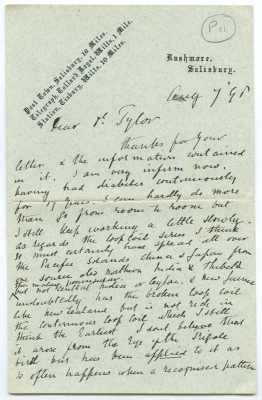 P11
Post Town, Salisbury, 10 Miles.
Telegraph, Tollard Royal, Wilts, 1 Mile.
Station, Tisbury, Wilts, 10 Miles.
Rushmore,
Salisbury.
Aug 7 '98
Dear Dr Tylor
Thanks for your
letter & the information contained
in it. I am very infirm now,
having had diabetes continuously
for 17 years. I can hardly do more
than go from room to room but
I still keep working a little slowly.
As regards the loop coil series I think
it must certainly have spread all over
the Pacific Islands China & Japan from
one source also northern India & Thibet
the malay
but not central India or Ceylon. & New Guinea
undoubtedly has the broken loop coil
like new zealand but is not rich in
the continuous loop coil which I still
think the Earliest. I dont believe that
it arose from the Eye of the Frigate
bird but has been applied to it as
so often happens when a recognised pattern